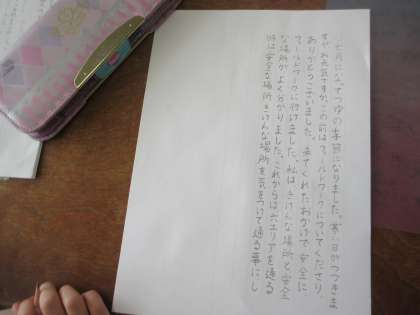 七月になってつゆの季節になりました。暑い日がつづきま
すがお元気ですか。この前はフィールドワークについてくださり
ありがとうございました。来てくれたおかげで安全に
フィールドワークに行けました。私はきけんな場所と安全
な場所がよく分かりました。これからは六エリアを通る
時は安全な場所ときけんな場所を気をつけて通る事にし